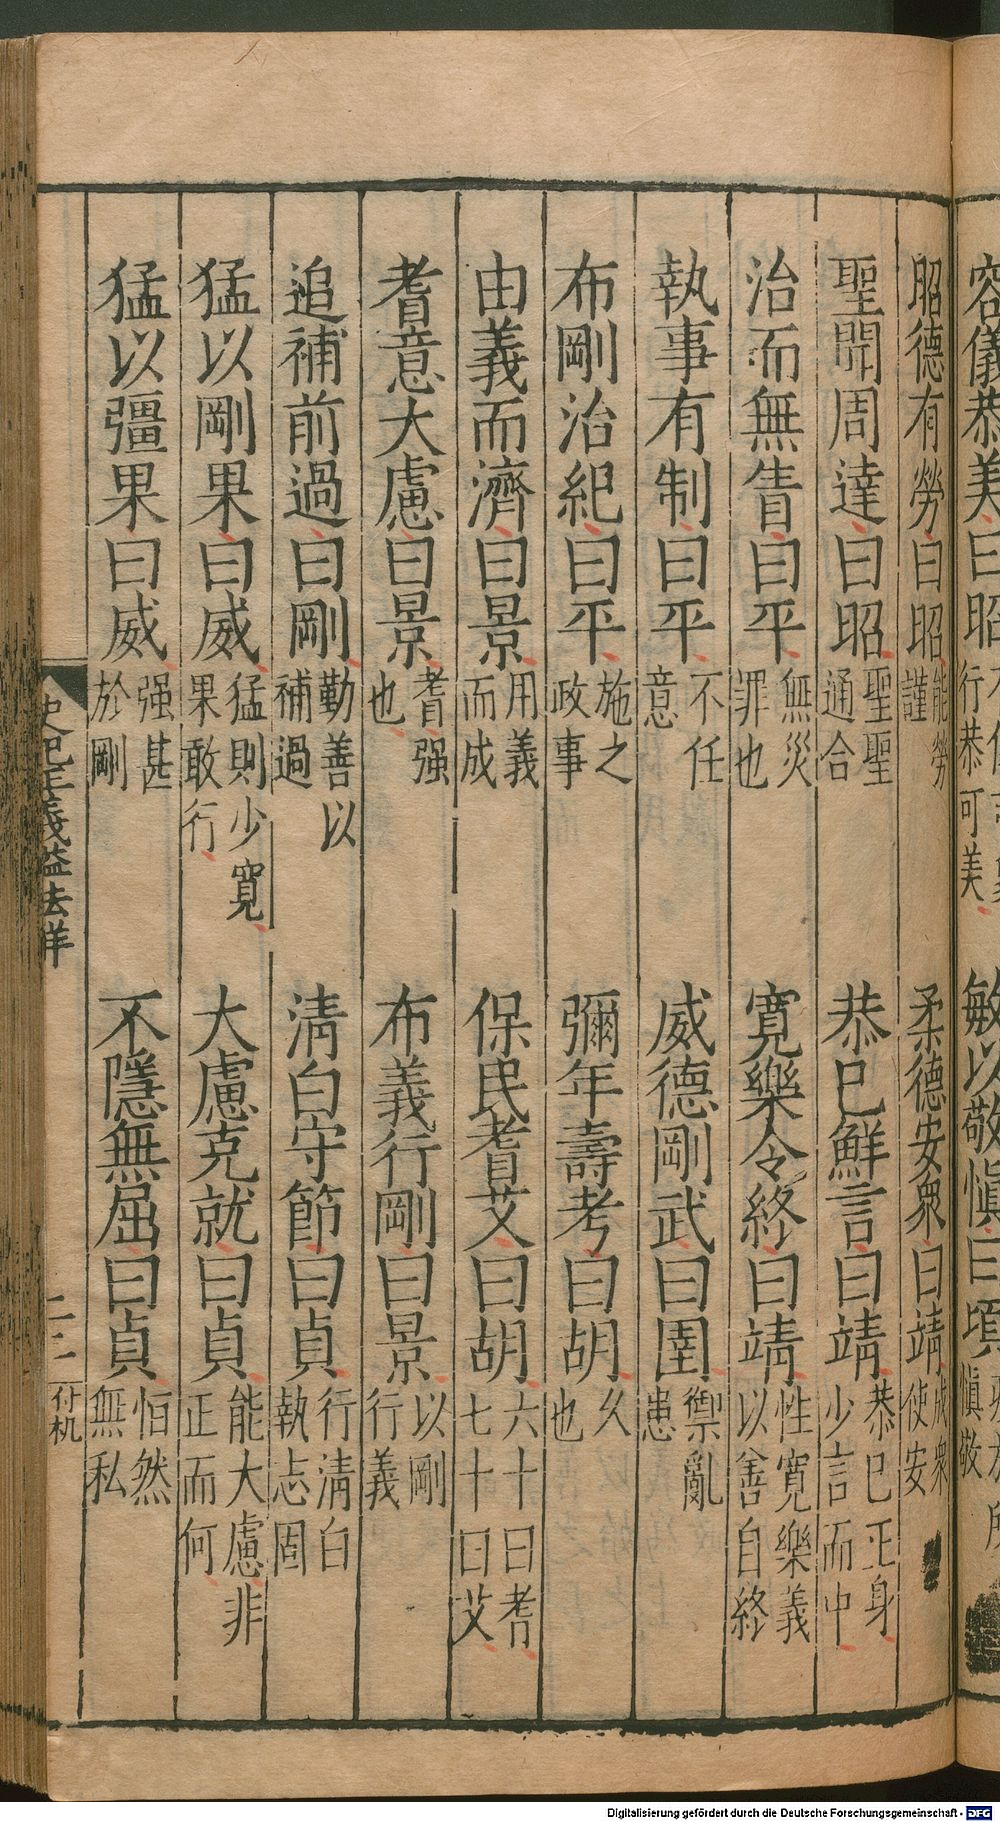 容儀恭美曰昭 行恭可美
敏以敬慎曰頃 慎敬
昭德有勞曰昭 能勞謹
柔德安衆曰靖 成衆使安
聖聞周達曰昭 聖聖通合
恭己鮮言曰靖 恭己正身少言而中
治而無眚曰平 無災罪也
寬樂令終曰靖 性寬樂義以善自終
執事有制曰平 不任意
威德剛武曰圉 禦亂患
布剛治紀曰平 施之政事
彌年壽考曰胡 久也
由義而濟曰景 用義而成
保民耆艾曰胡 六十曰耆七十曰艾
耆意大慮曰景 耆强也
布義行剛曰景 以剛行義
追補前過曰剛 勤善以補過
清白守節曰貞 行清白執志固
猛以剛果曰威 猛則少寬果敢行
大慮克就曰貞 能大慮非正而何
猛以彊果曰威 强甚於剛
不隱無屈曰貞 怛然無私
史記正義謚法解
二三
付机
Digitalisierung gefördert durch die Deutsche Forschungsgemeinschaft - DFG